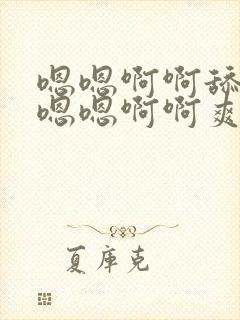 嗯嗯啊啊舔
嗯嗯啊啊爽
夏库克